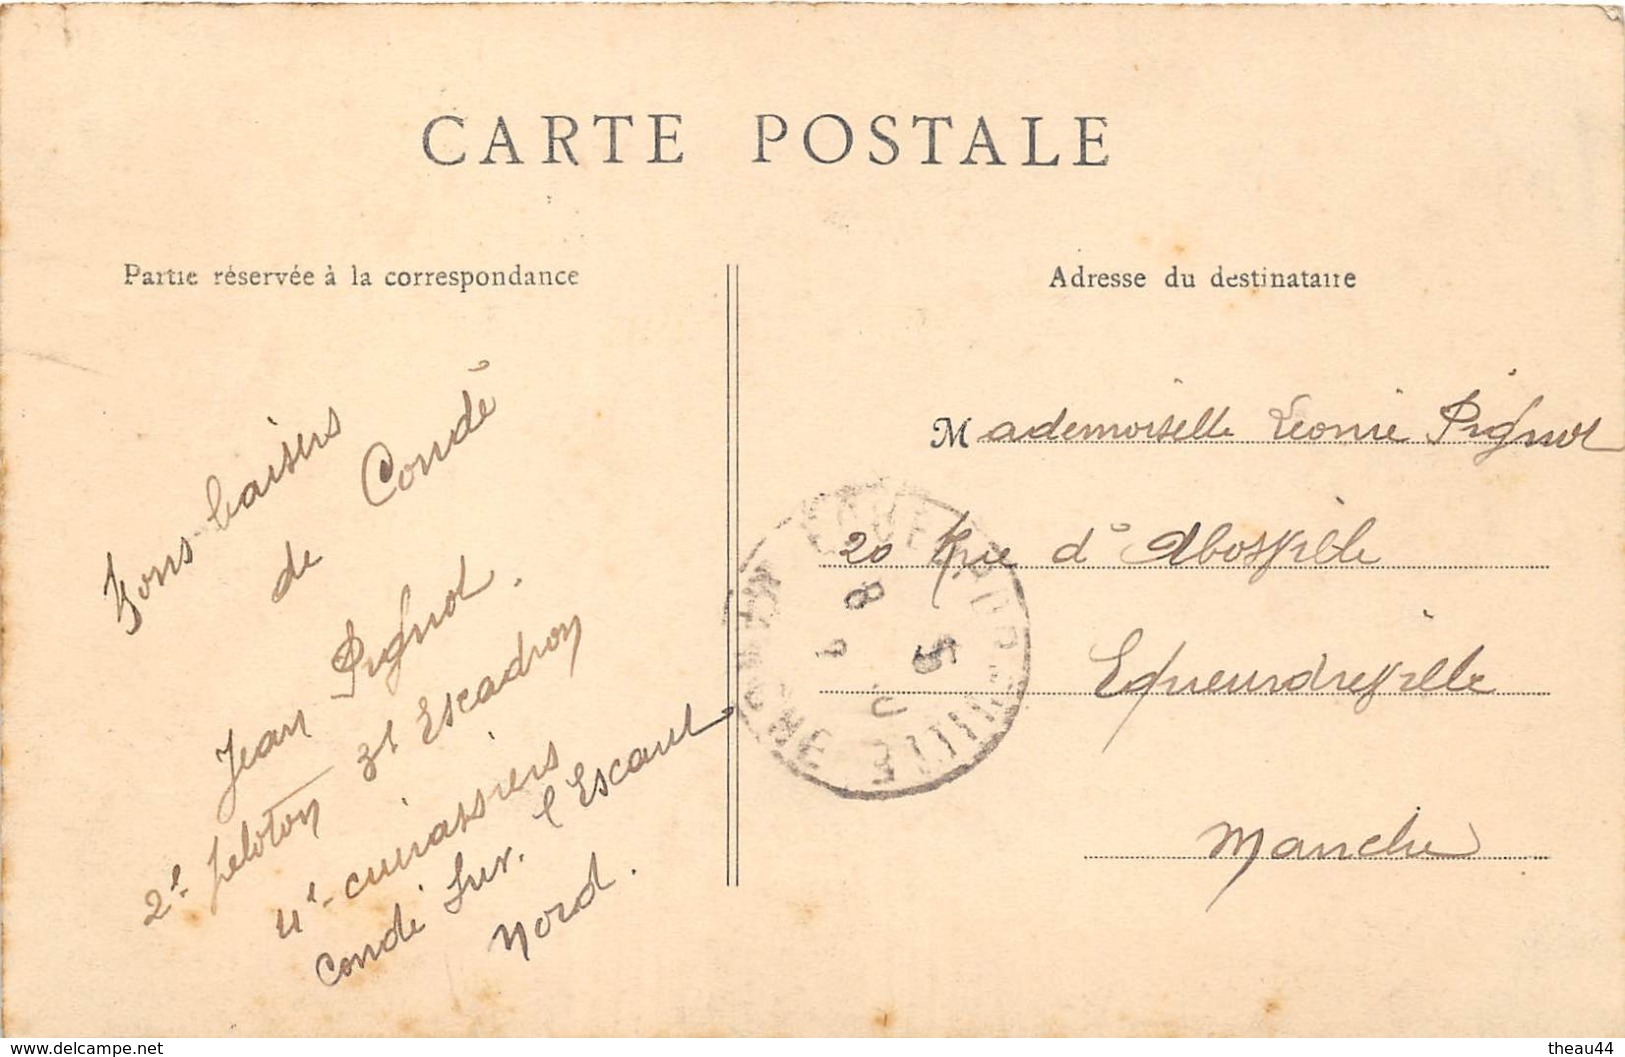 CARTE POSTALE
Partie réservée à la correspondance
Bons baisers
de Condé
Jean Pignot.
2e peloton 3e Escadron
4e cuirassiers
Condé sur l'Escaut
Nord.
Adresse du destinataire
Mademoiselle Léonie Pignot
20 Rue d'
Equeurdreville
Manche
www.delcampe.net
theau44